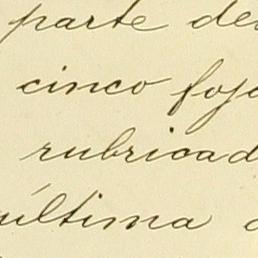 parte de
cinco foja
rubricad
última